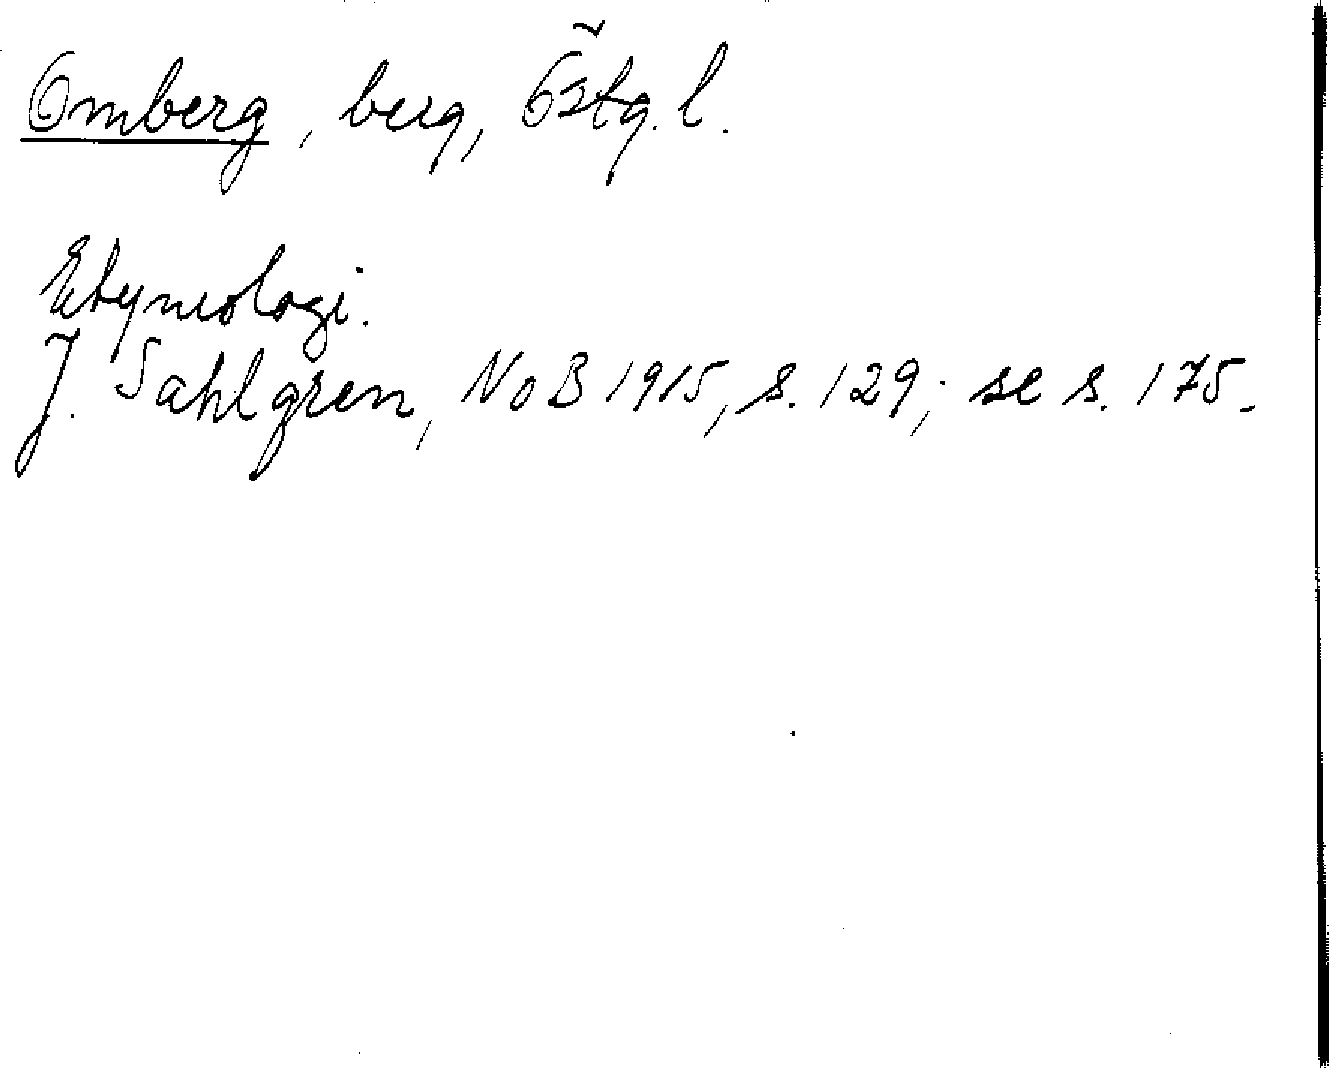 Omberg, berg, Östg. l.
Etymologi.
J. Sahlgren, NoB 1915, s. 129; se s. 175.